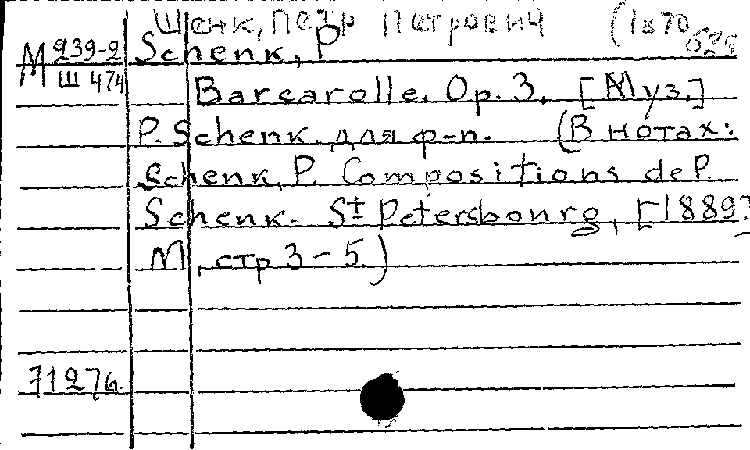 Шенк, Петр Петрович (1870
М 239-2 Schenk, P
Ш 474
Barcarolle. Op. 3. [Муз.]
P. Schenk. для ф-п. (В нотах:
Schenk, P. Compositions de P.
Schenk. St Petersbourg, [1889?
М, стр 3-5.)
71276.